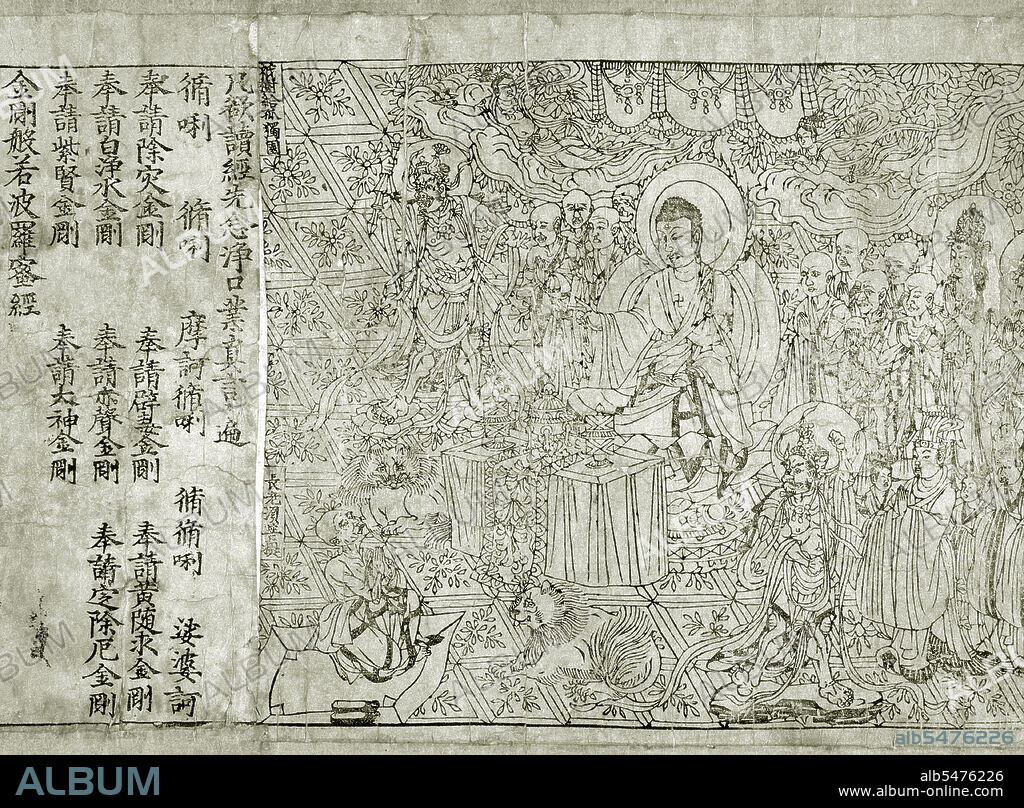 祇樹給孤獨園
長老須菩提
凡欲讀經先念淨口業真言一遍
脩唎 脩唎 摩訶脩唎 脩脩唎 娑婆訶
奉請除災金剛 奉請辟毒金剛 奉請黃隨求金剛
奉請白淨水金剛 奉請赤聲金剛 奉請定除厄金剛
奉請紫賢金剛 奉請大神金剛
金剛般若波羅蜜經
ALBUM
alb5476226
ALBUM
alb5476226
www.album-online.com